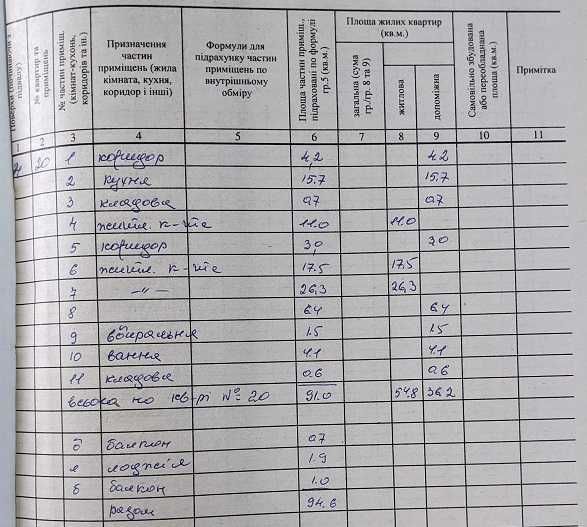 Поверхи (починаючи з підвалу)
№ квартир та приміщень
№ частин приміщ. (кімнат-кухонь, коридорів та ін.)
Призначення частин приміщень (жила кімната, кухня, коридор і інші)
Формули для підрахунку частин приміщень по внутрішньому обміру
Площа частин приміщ., підрахована по формулі гр.5 (кв.м.)
Площа жилих квартир (кв.м.)
загальна (сума гр./гр. 8 та 9)
житлова
допоміжна
Самовільно збудована або переобладнана площа (кв.м.)
Примітка
1 2 3 4 5 6 7 8 9 10 11
4 20 1 коридор 4,2 4.2
2 кухня 15.7 15.7
3 кладова 0.7 0.7
4 житл. к-та 11.0 11.0
5 коридор 3,0 3.0
6 житл. к-та 17.5 17.5
7 —"— 26,3 26,3
8 6.4 6.4
9 вбиральня 1.5 1.5
10 ванна 4.1 4.1
11 кладова 0.6 0.6
всього по кв-рі № 20 91.0 54.8 36.2
б балкон 0.7
л лоджія 1.9
б балкон 1.0
разом 94.6